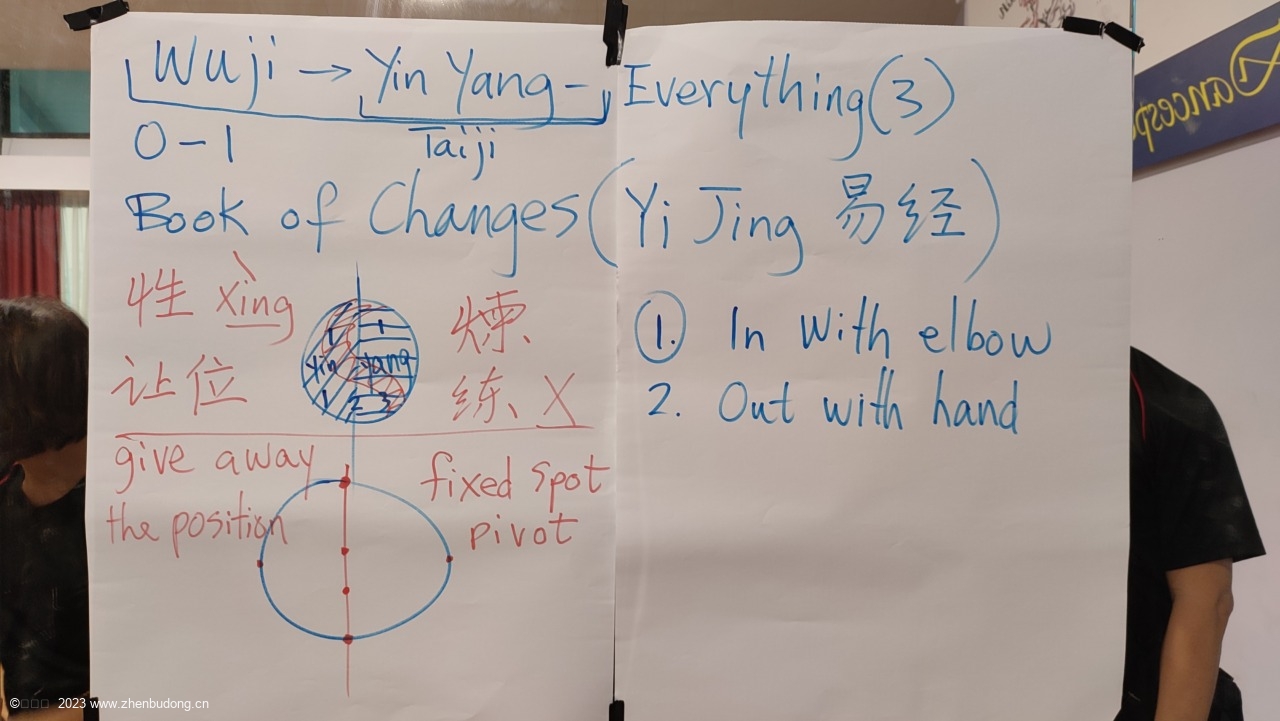 Wuji → Yin Yang - Everything(3)
0 - 1 Taiji
Book of Changes (Yi Jing 易经)
性 xìng
让位
give away
the position
1 1
Yin Yang
1 2 3
炼
练 X
fixed spot
pivot
①. In with elbow
2. Out with hand
Dancesp
© 2023 www.zhenbudong.cn